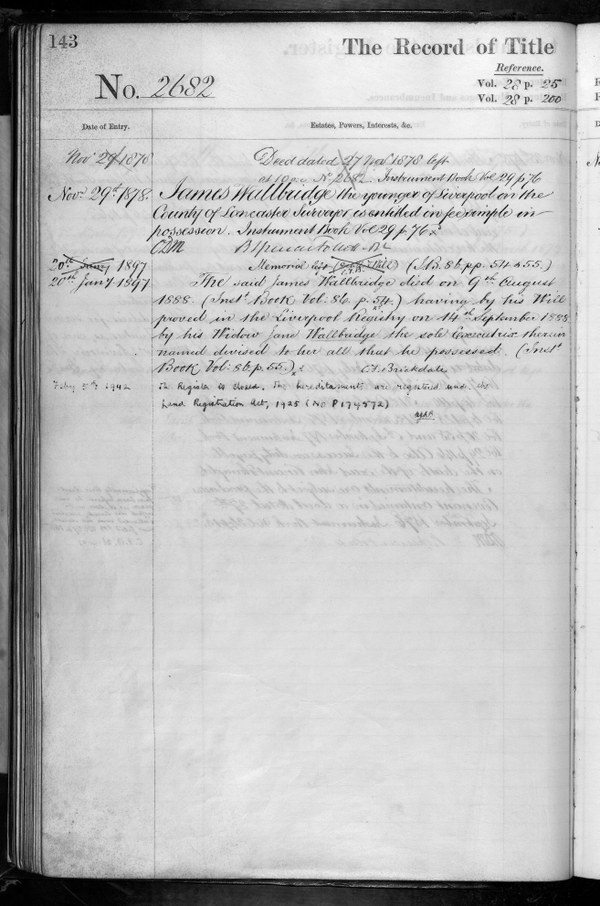 143
The Record of Title
Reference.
No. 2682
Vol. 28 p. 25
Vol. 28 p. 200
Date of Entry.
Estates, Powers, Interests, &c.
Nov 29 1878
Deed dated 27 Nov 1878 left
at 10 No 2682 Instrument Book Vol 29 p. 76
Nov. 29th 1878.
James Wallbridge the younger of Liverpool in the
County of Lancaster Surveyor is entitled in fee simple in
possession. Instrument Book Vol 29 p. 76
20th Jany 1897
Memorial left (I.B. 86 pp. 54 & 55.)
20th Jany 1897
The said James Wallbridge died on 9th August
1888. (Inst. Book Vol: 86. p. 54.) having by his Will
proved in the Liverpool Registry on 14th September 1888
by his Widow Jane Wallbridge the sole Executrix therein
named devised to her all that he possessed. (Inst.
Book Vol: 86. p. 55.)
C.F. Brickdale
Feby 5th 1942
The Register is closed. The hereditaments are registered under the
Land Registration Act, 1925 (No P174572)